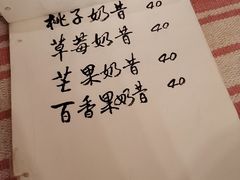 桃子奶昔 40
草莓奶昔 40
芒果奶昔 40
百香果奶昔 40